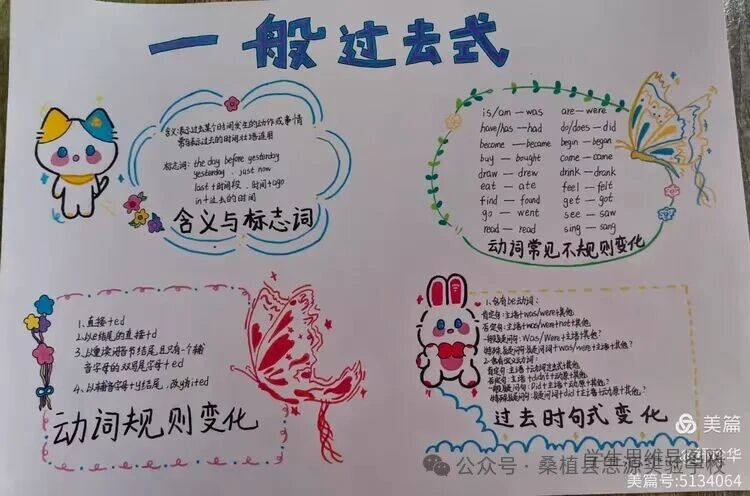 一般过去式
含义:表示过去某个时间发生的动作或事情
常与表示过去的时间状语连用
标志词: the day before yesterday
yesterday . just now
last+时间段 . 时间+ago
in+过去的时间
含义与标志词
is/am — was are — were
have/has — had do/does — did
become — became begin — began
buy — bought come — came
draw — drew drink — drank
eat — ate feel — felt
find — found get — got
go — went see — saw
read — read sing — sang
动词常见不规则变化
1、直接+ed
2、以e结尾的直接+d
3、以重读闭音节结尾,且只有一个辅
音字母的双写尾字母+ed
4、以辅音字母+y结尾,改y为i+ed
动词规则变化
1、含有be动词:
肯定句:主语+was/were+其他.
否定句:主语+was/were+not+其他.
一般疑问句:Was/Were+主语+其他?
特殊疑问句:疑问词+was/were+主语+其他?
2、含有实义动词:
肯定句:主语+动词过去式+其他.
否定句:主语+didn't+动原+其他.
一般疑问句:Did+主语+动原+其他?
特殊疑问句:疑问词+did+主语+动原+其他?
过去时句式变化
美篇
学生思维导图
公众号·桑植县思源实验学校
美篇号:5134064